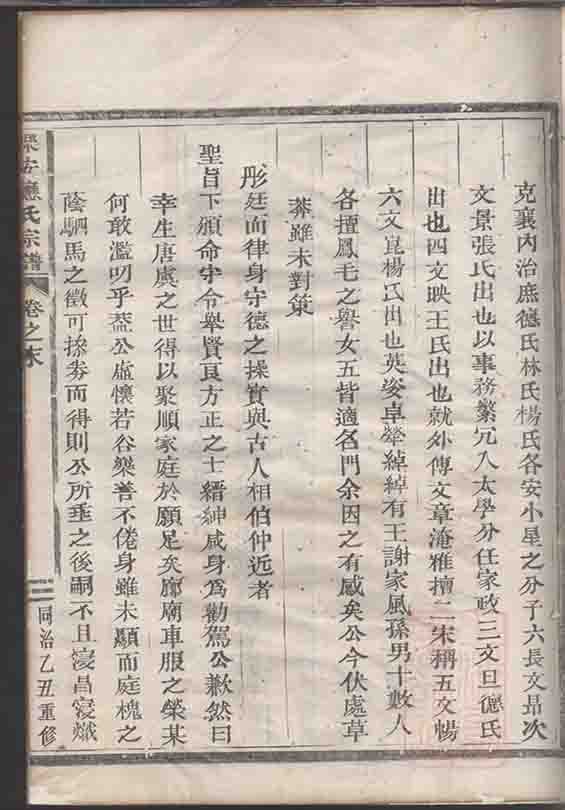 克襄內治庶德氏林氏楊氏各安小星之分子六長文昻次
文景張氏出也以事務繁冗入太學分任家政三文旦德氏
出也四文映王氏出也就外傳文章淹雅擅二宋稱五文暢
六文崑楊氏出也英姿卓犖綽綽有王謝家風孫男十數人
各擅鳳毛之譽女五皆適名門余因之有感矣公今伏處草
莽雖未對策
彤廷而律身守德之操實與古人相伯仲近者
聖旨下頒命守令舉賢良方正之士縉紳咸身爲勸駕公歉然曰
幸生唐虞之世得以聚順家庭於願足矣廊廟車服之榮某
何敢濫叨乎葢公虛懷若谷樂善不倦身雖未顯而庭槐之
蔭駟馬之徵可操券而得則公所垂之後嗣不且寖昌寖熾
安應氏宗譜
卷之末
三
同治乙丑重修